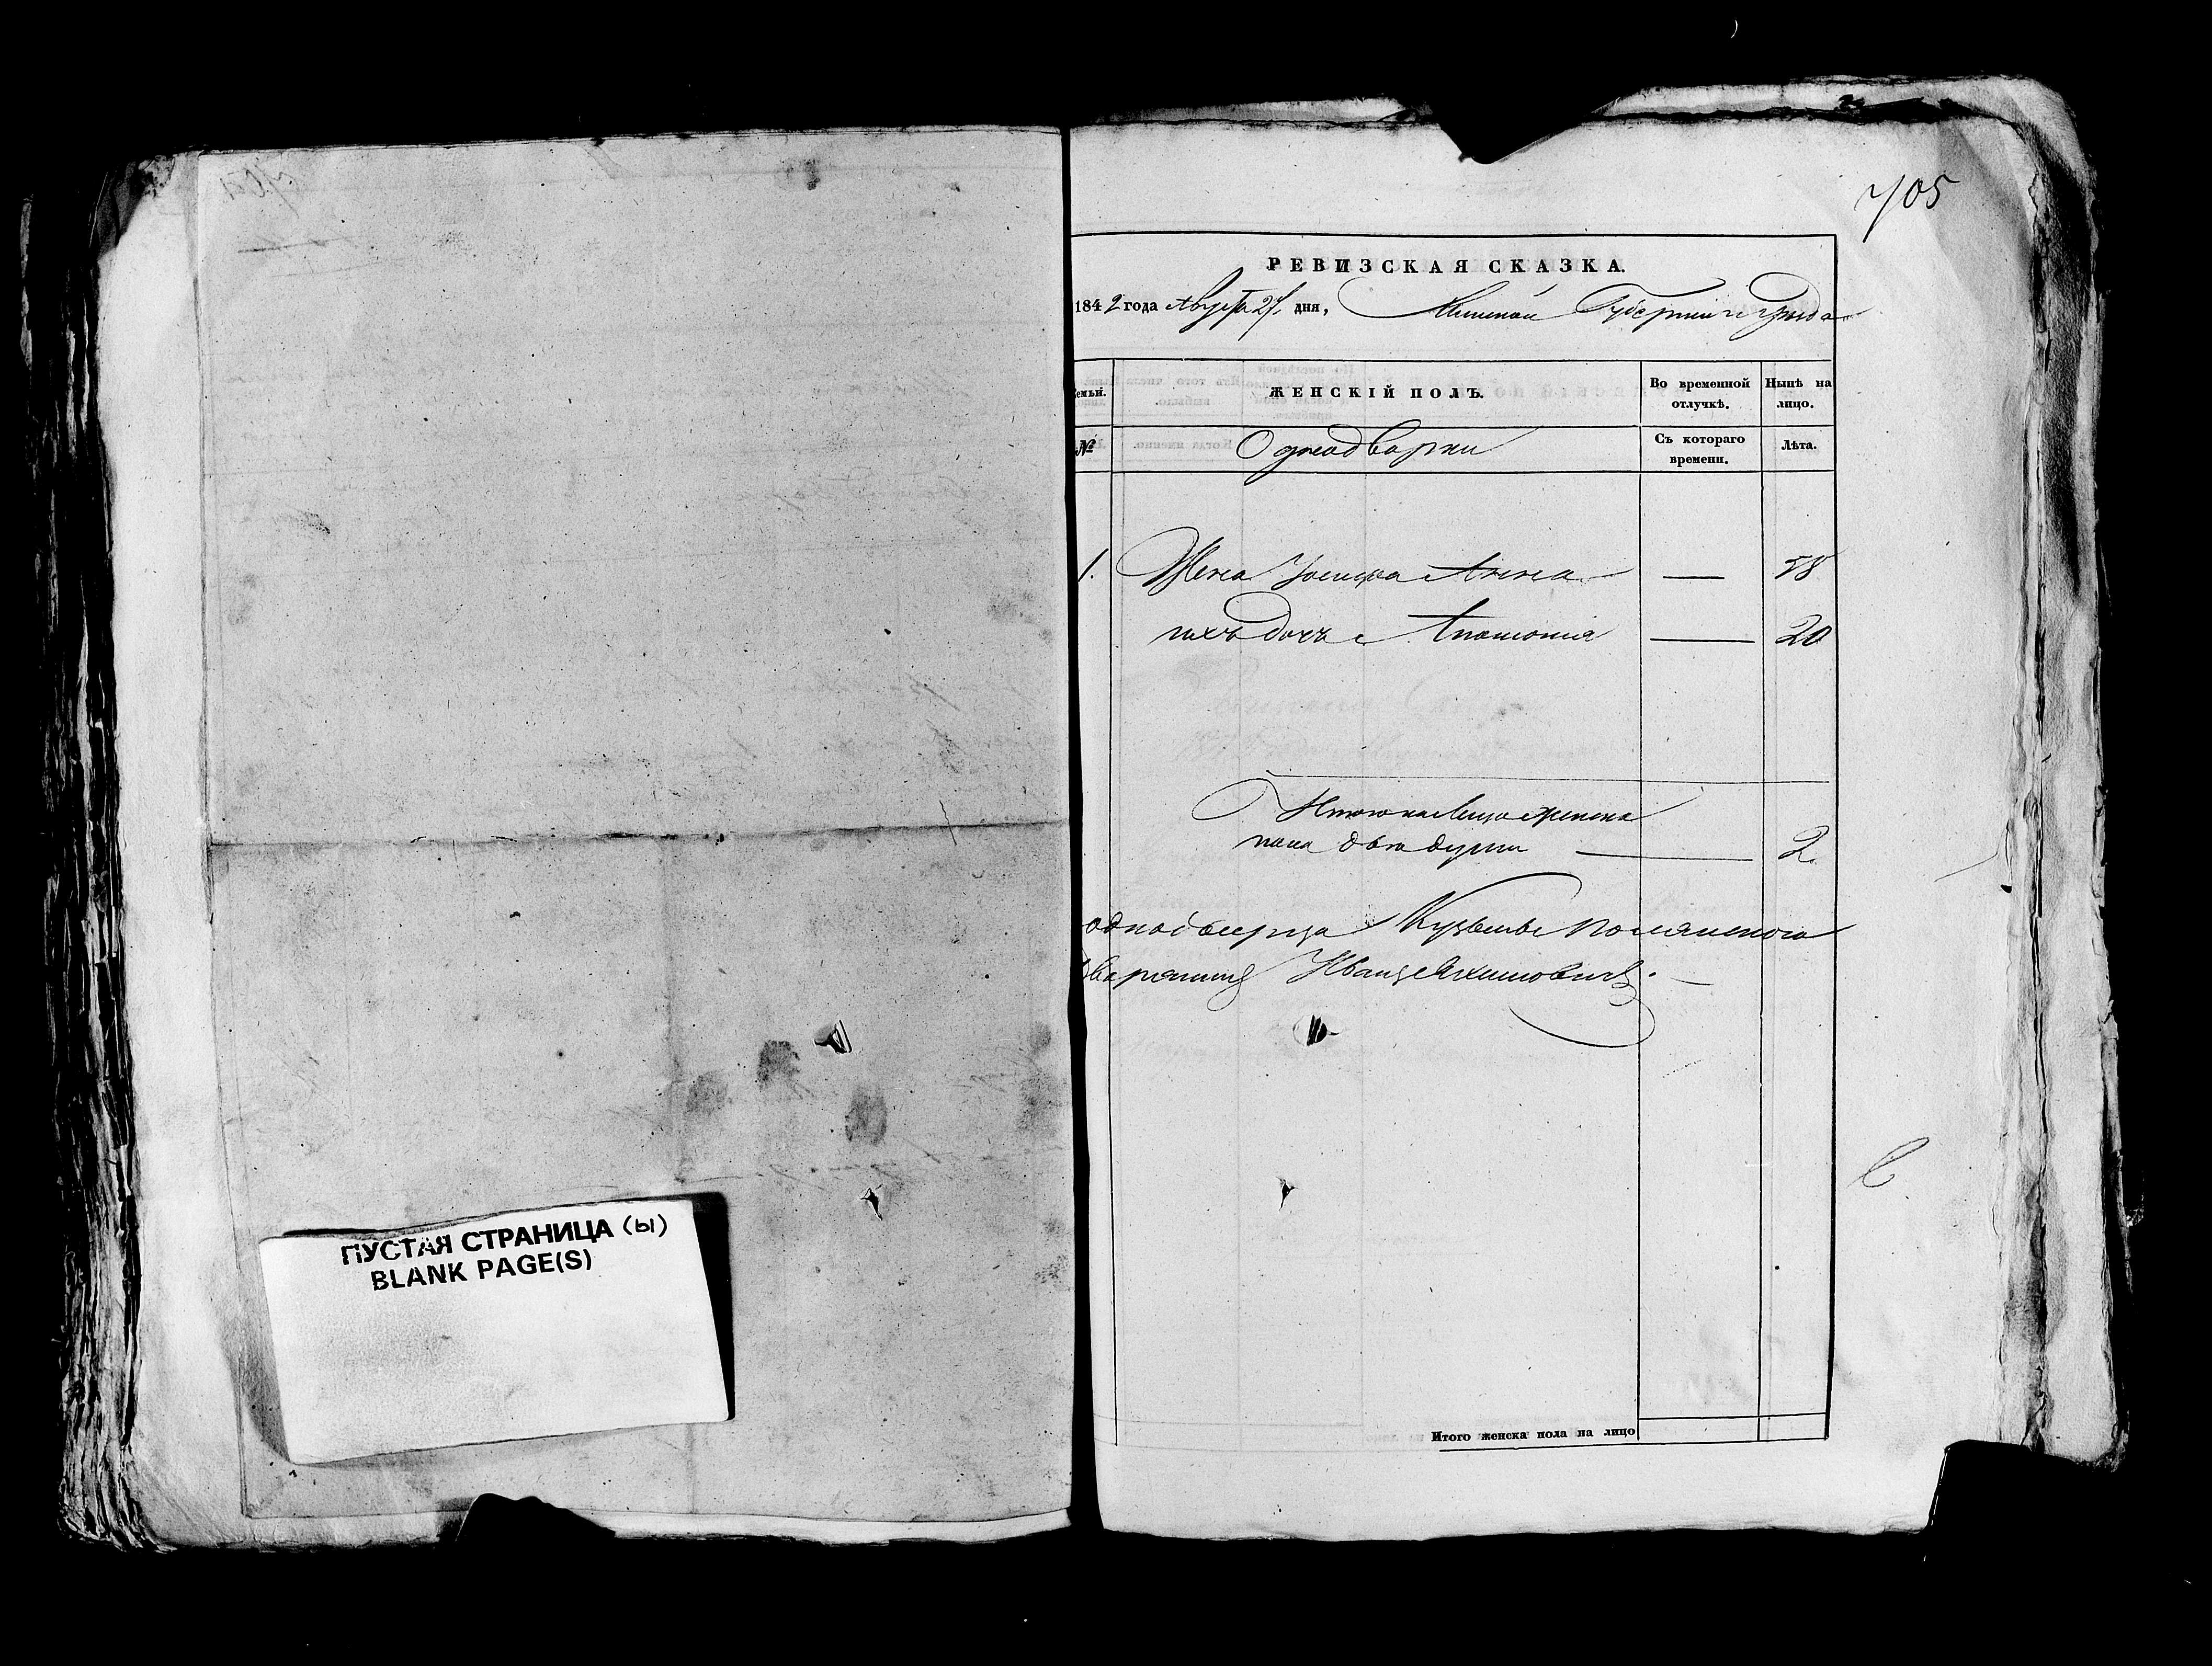 705
РЕВИЗСКАЯ СКАЗКА.
1842 года Августа 27 дня, Минской Губернии и уѣзда
Семьи. ЖЕНСКІЙ ПОЛЪ. Во временной отлучкѣ. Нынѣ на лицо.
№ Однодворки Съ котораго времени. Лѣта.
1. Жена Анна — 58
ихъ дочь Апполонія — 20
Итого на Лицо женска
пола двѣ души — 2.
однодворца
Иванъ
Итого женска пола на лицо
ПУСТАЯ СТРАНИЦА (ы)
BLANK PAGE(S)